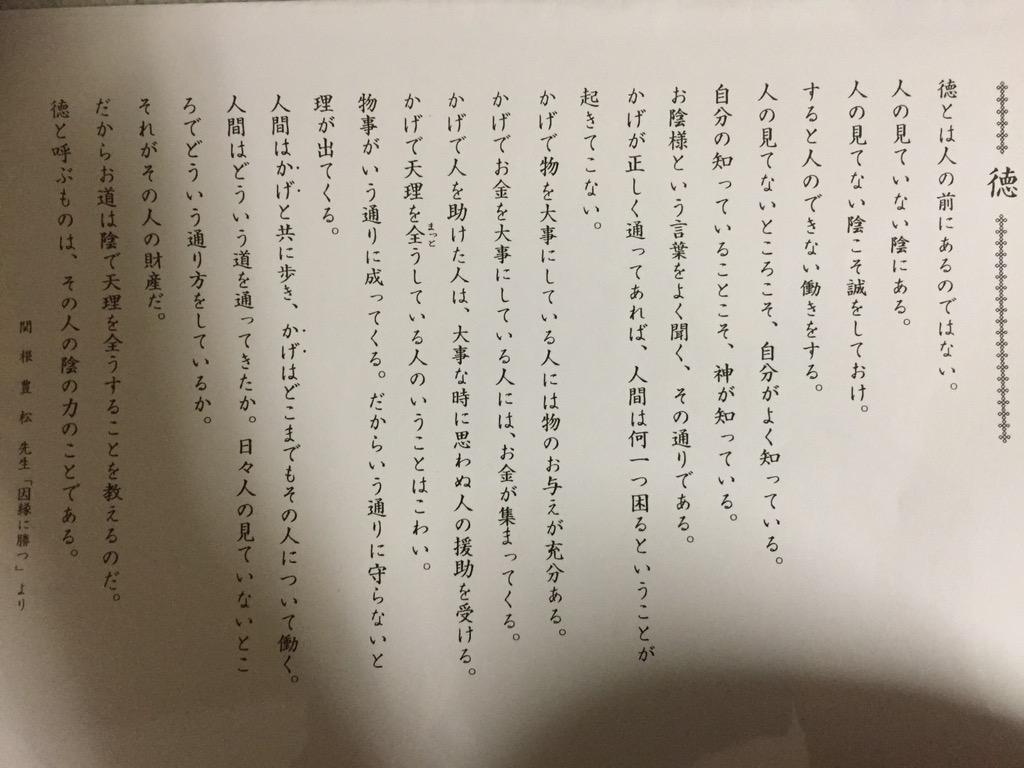 徳
徳とは人の前にあるのではない。
人の見ていない陰にある。
人の見てない陰こそ誠をしておけ。
すると人のできない働きをする。
人の見てないところこそ、自分がよく知っている。
自分の知っていることこそ、神が知っている。
お陰様という言葉をよく聞く、その通りである。
かげが正しく通ってあれば、人間は何一つ困るということが
起きてこない。
かげで物を大事にしている人には物のお与えが充分ある。
かげでお金を大事にしている人には、お金が集まってくる。
かげで人を助けた人は、大事な時に思わぬ人の援助を受ける。
かげで天理を全うしている人のいうことはこわい。
まっと
物事がいう通りに成ってくる。だからいう通りに守らないと
理が出てくる。
人間はかげと共に歩き、かげはどこまでもその人について働く。
人間はどういう道を通ってきたか。日々人の見ていないとこ
ろでどういう通り方をしているか。
それがその人の財産だ。
だからお道は陰で天理を全うすることを教えるのだ。
徳と呼ぶものは、その人の陰の力のことである。
関根豊松先生「因縁に勝つ」より